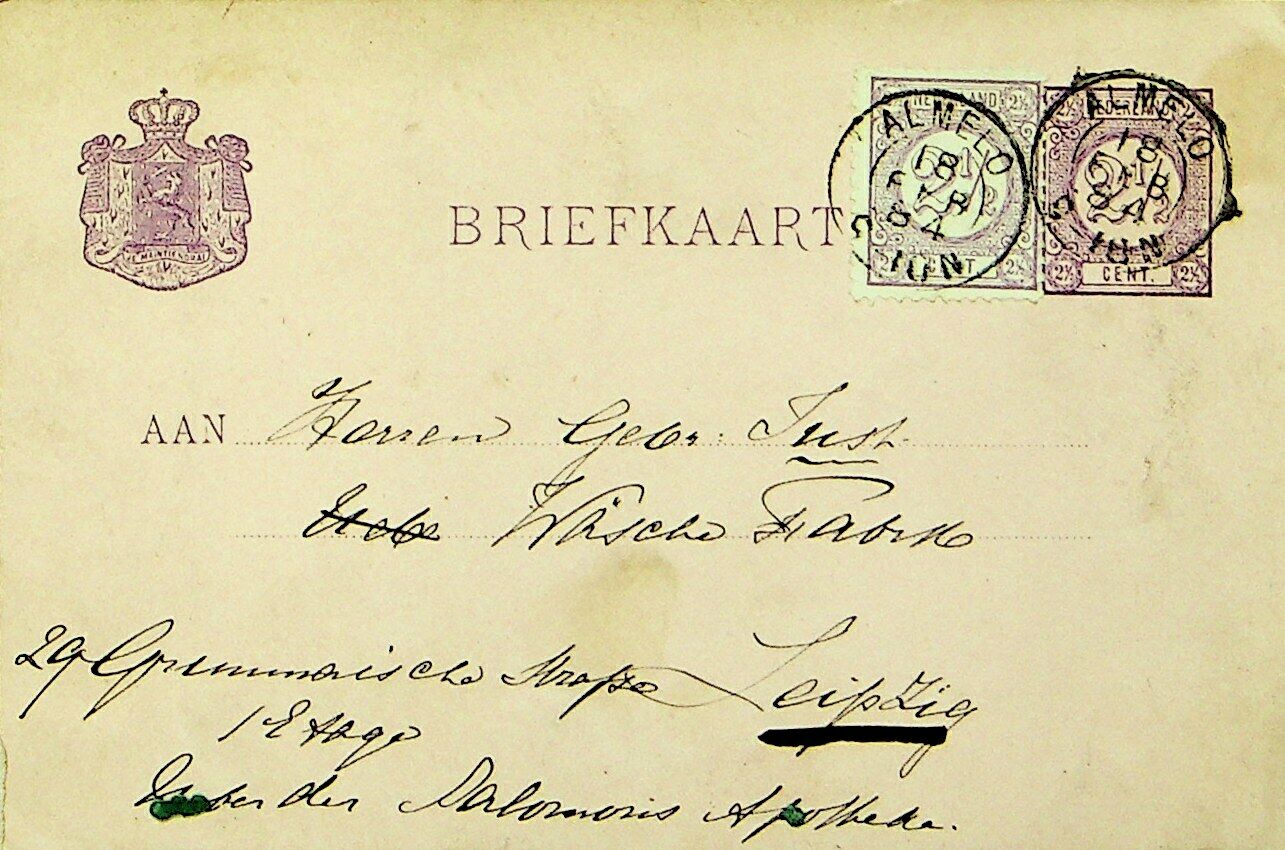 NEDERLAND 2½
2½ NEDERLAND
ALMELO
18
84
2½
CENT
ALMELO
18
84
2½
2½ CENT. 2½
JE MAINTIENDRAI
BRIEFKAART
AAN Herren Gebr. Just
Wäsche Fabrik
29 Grimmaische Straße Leipzig
1 Etage
Ueber der Salomonis Apotheke.